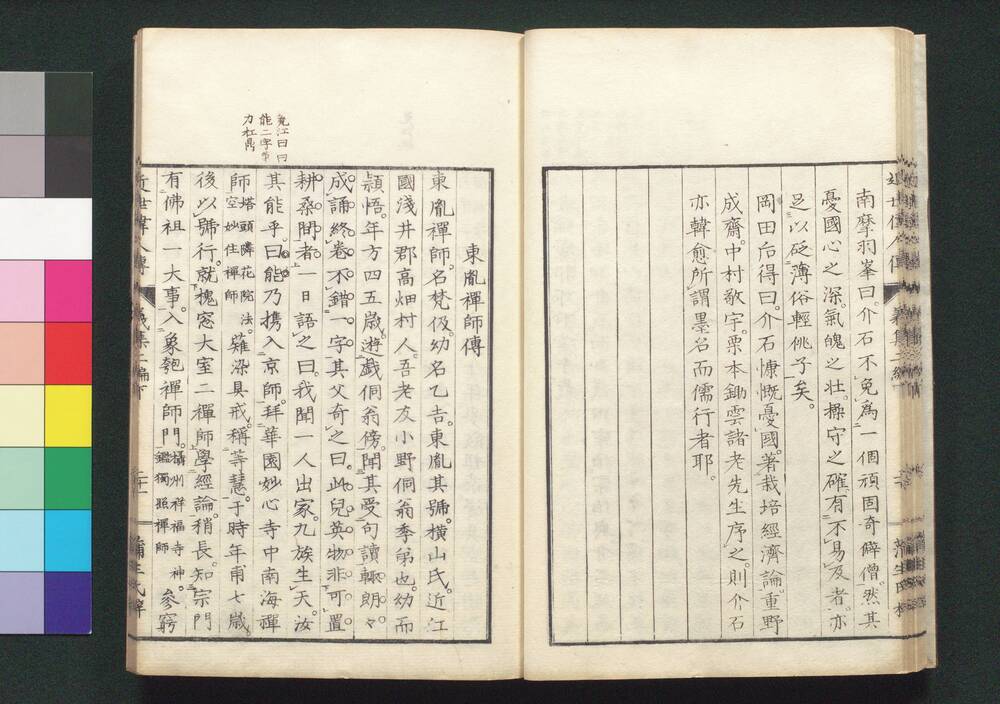 南摩羽峯曰。介石不免爲一個頑固奇僻僧。然其
憂國心之深。氣魄之壯。操守之確。有不易及者。亦
足以砭薄俗輕佻子矣。
岡田后得曰。介石慷慨憂國。著栽培經濟論。重野
成齋。中村敬宇。栗本鋤雲諸老先生序之。則介石
亦韓愈所謂墨名而儒行者耶。
東胤禪師傳
東胤禪師。名梵伋。幼名乙吉。東胤其號。横山氏。近江
國淺井郡高畑村人。吾老友小野侗翁季弟也。幼而
頴悟。年方四五歳。遊戯侗翁傍。聞其受句讀。輙朗々
成誦。終卷不錯一字。其父奇之曰。此兒英物。非可置
耕桑間者。一日語之曰。我聞一人出家。九族生天。汝
其能乎。曰能。乃携入京師。拜華園妙心寺中南海禪
師塔頭隣花院法。空妙住禪師薙染具戒。稱等慧。于時年甫七歳
後以號行。就槐窓大室二禪師學經論。稍長。知宗門
有佛祖一大事。入象匏禪師門。攝州祥福寺神。鑑獨照禪師參窮
江曰曰
能二字
力杠鼎
近世偉人傳
義集二編下
二十一
蒲生氏